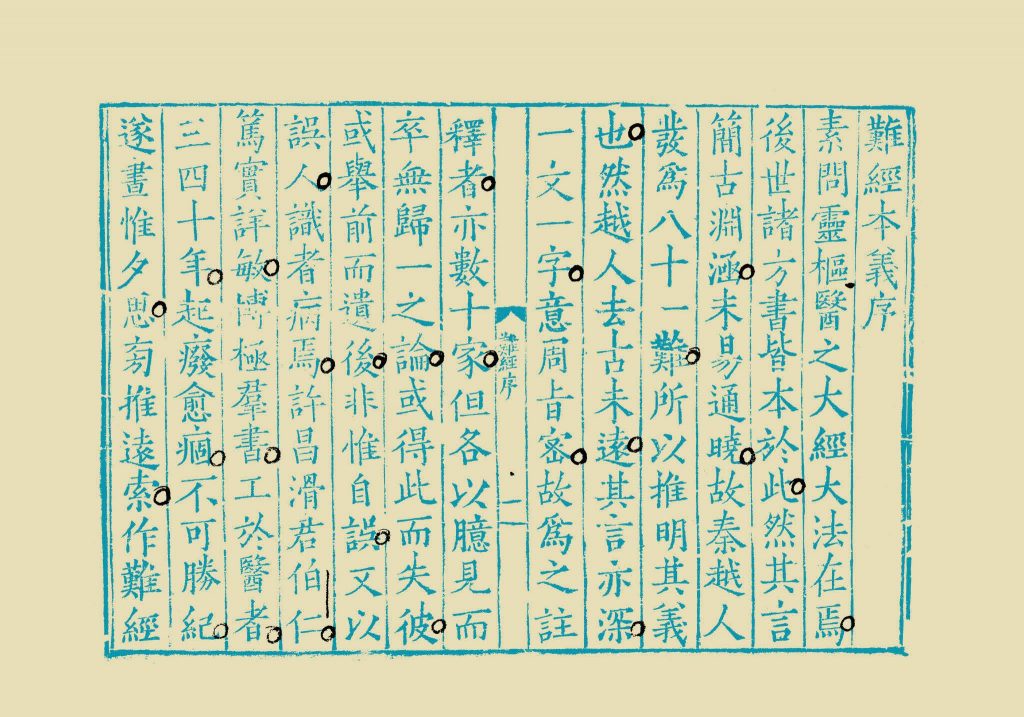 難經本義序
素問靈樞醫之大經大法在焉
後世諸方書皆本於此然其言
簡古淵涵未易通曉故秦越人
發爲八十一難所以推明其義
也然越人去古未遠其言亦深
一文一字意周旨密故爲之註
難經序 一
釋者亦數十家但各以臆見而
卒無歸一之論或得此而失彼
或舉前而遺後非惟自誤又以
誤人識者病焉許昌滑君伯仁
篤實詳敏博極羣書工於醫者
三四十年起癈愈痼不可勝紀
遂晝惟夕思旁推遠索作難經